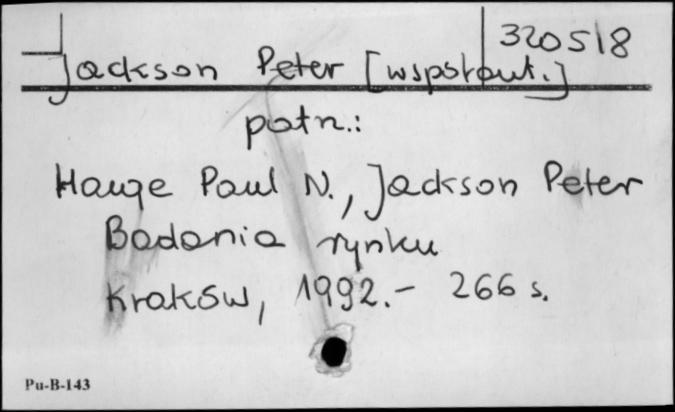 320518
Jackson Peter [współaut.]
patrz:
Hauge Paul N., Jackson Peter
Badania rynku
Kraków, 1992.- 266 s.
Pu-B-143